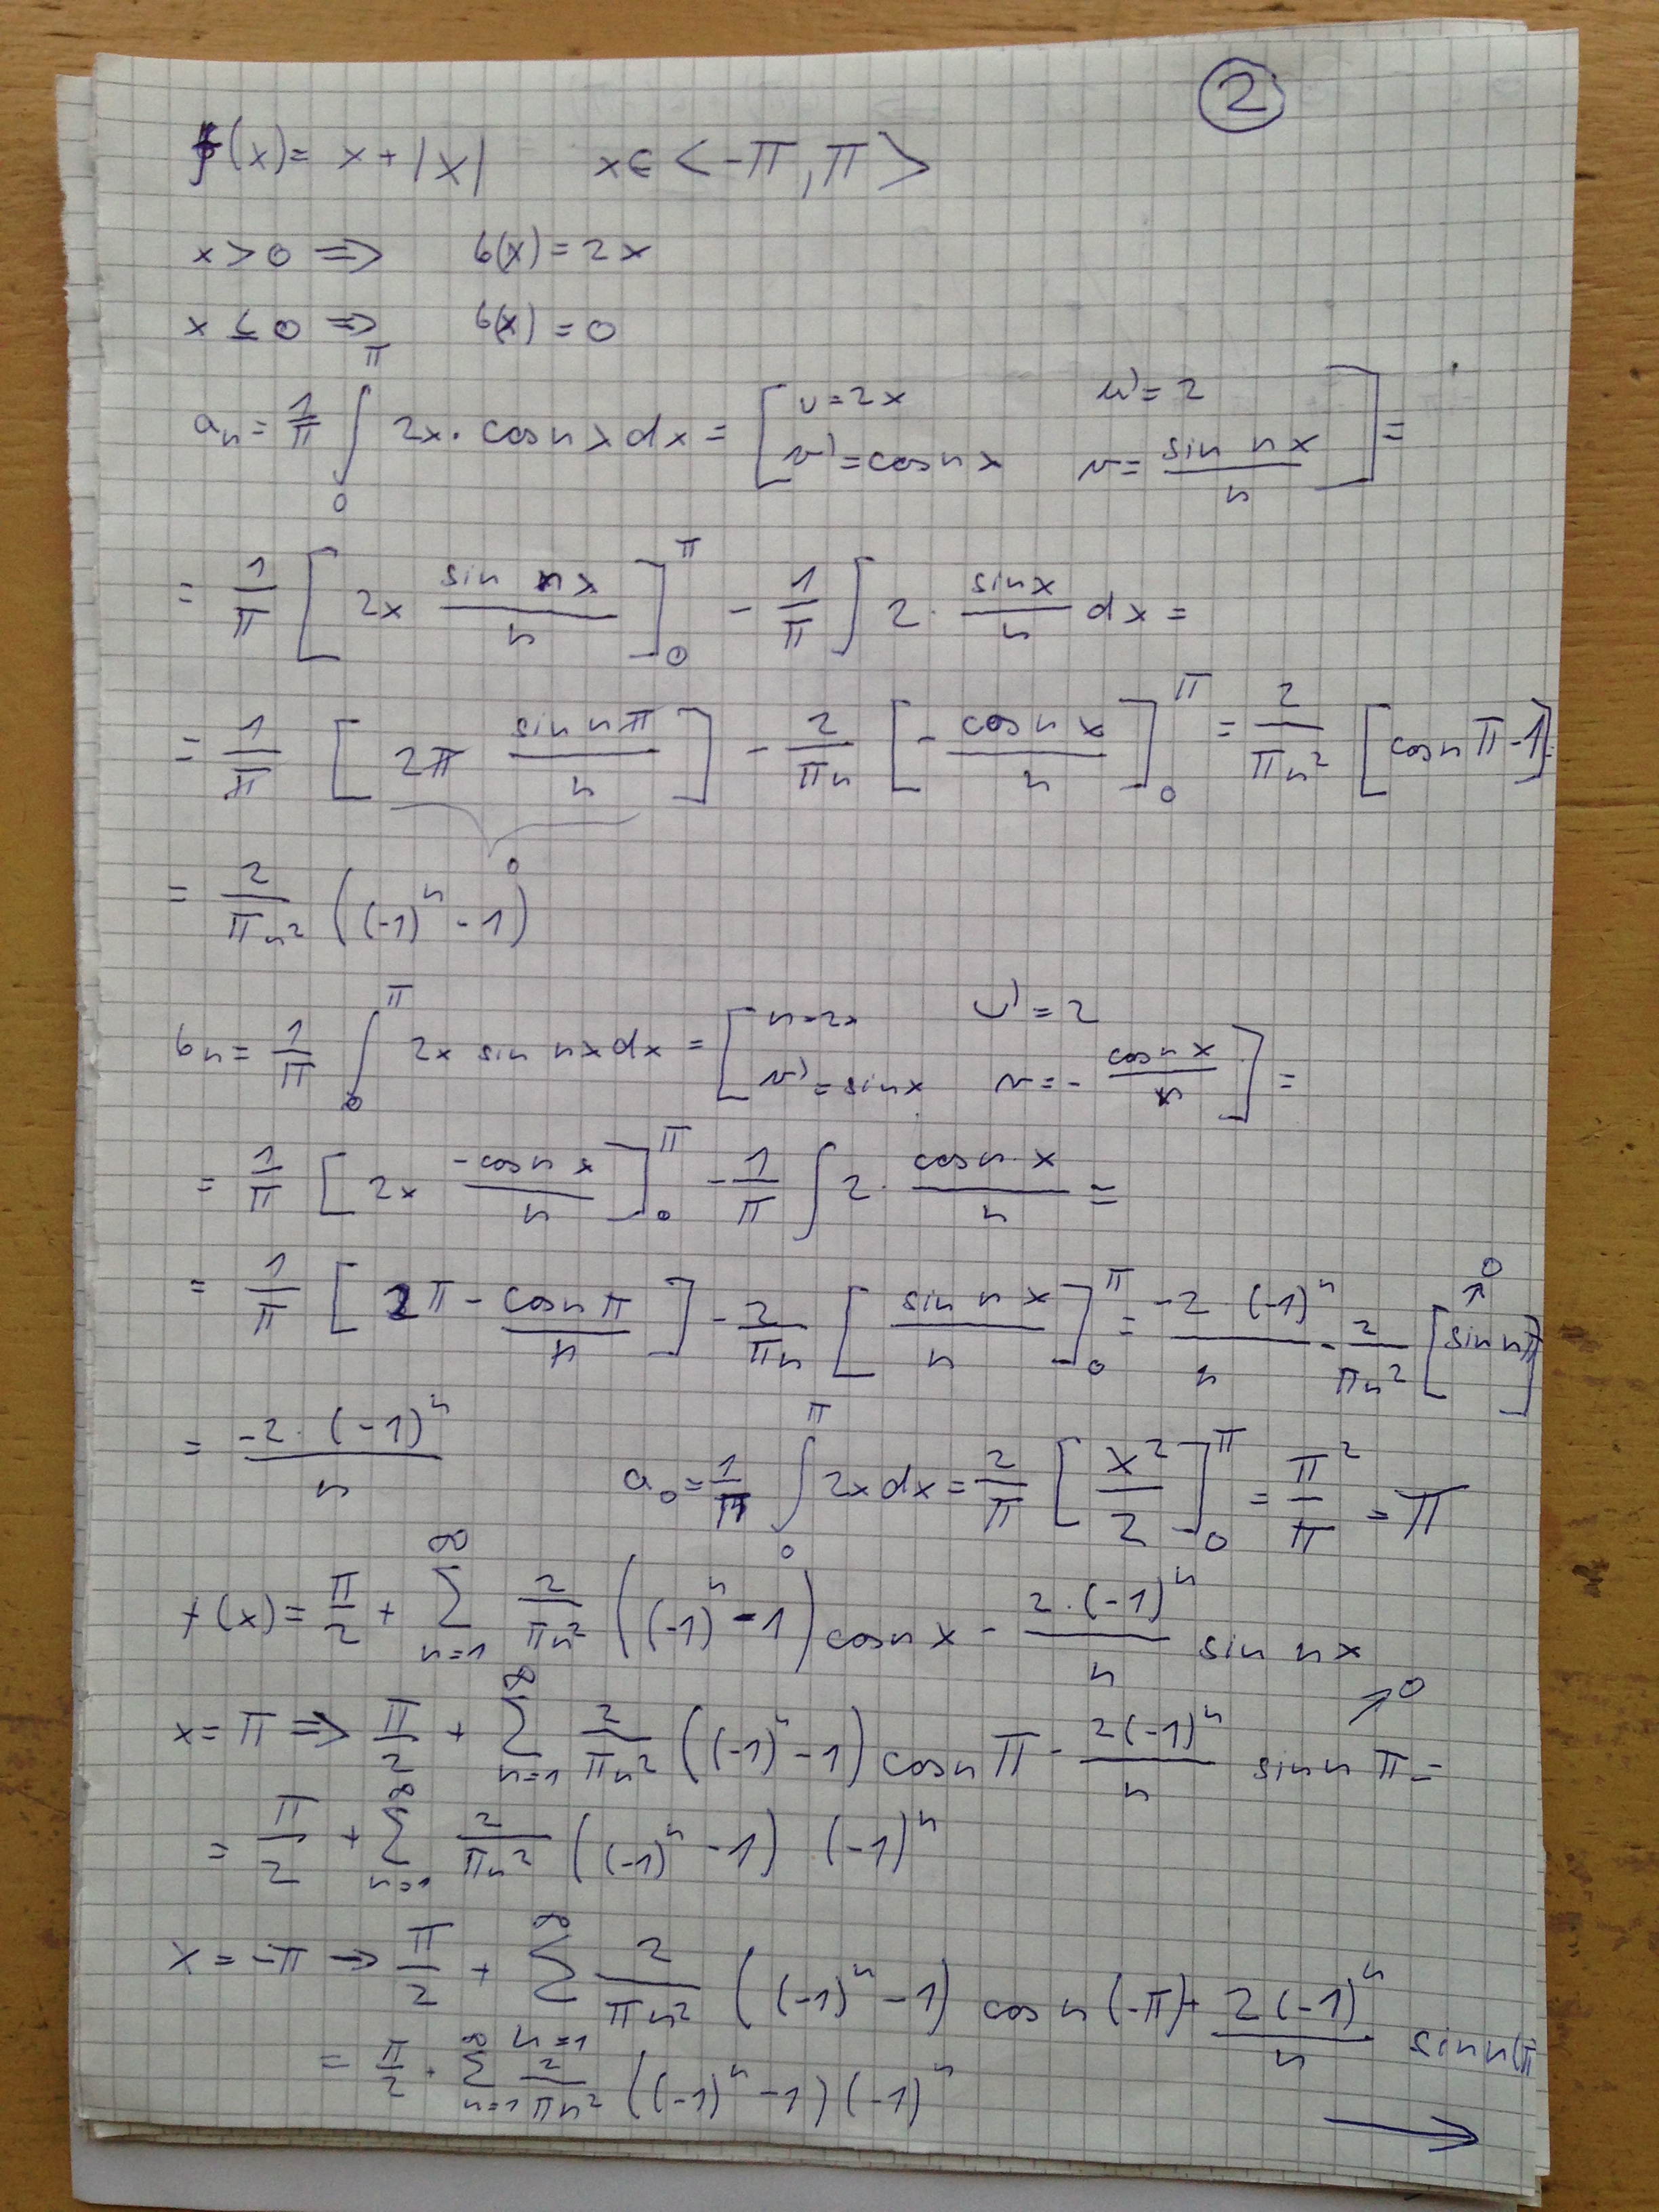 2
f(x) = x + |x| x ∈ <-π, π>
x > 0 ⇒ f(x) = 2x
x ≤ 0 ⇒ f(x) = 0
a_n = 1/π ∫_0^π 2x · cos nx dx = [u = 2x u' = 2 v' = cos nx v = (sin nx)/n] =
= 1/π [2x (sin nx)/n]_0^π - 1/π ∫ 2 · (sin x)/n dx =
= 1/π [2π (sin nπ)/n] - 2/(πn) [-(cos nx)/n]_0^π = 2/(πn²) [cos nπ - 1] =
0
= 2/(πn²) ((-1)^n - 1)
b_n = 1/π ∫_0^π 2x sin nx dx = [u = 2x u' = 2 v' = sin x v = -(cos nx)/n] =
= 1/π [2x (-cos nx)/n]_0^π - 1/π ∫ 2 · (cos n x)/n =
= 1/π [2π - (cos nπ)/n] - 2/(πn) [(sin nx)/n]_0^π = (-2 (-1)^n)/n - 2/(πn²) [sin nπ] ↗0
= (-2 · (-1)^n)/n a_0 = 1/π ∫_0^π 2x dx = 2/π [x²/2]_0^π = π²/π = π
f(x) = π/2 + ∑_{n=1}^∞ 2/(πn²) ((-1)^n - 1) cos nx - (2 · (-1)^n)/n sin nx
x = π ⇒ π/2 + ∑_{n=1}^∞ 2/(πn²) ((-1)^n - 1) cos nπ - (2(-1)^n)/n sin nπ ↗0 =
= π/2 + ∑_{n=1}^∞ 2/(πn²) ((-1)^n - 1) (-1)^n
x = -π → π/2 + ∑_{n=1}^∞ 2/(πn²) ((-1)^n - 1) cos n(-π) + (2(-1)^n)/n sin n(π
= π/2 + ∑_{n=1}^∞ 2/(πn²) ((-1)^n - 1) (-1)^n
→